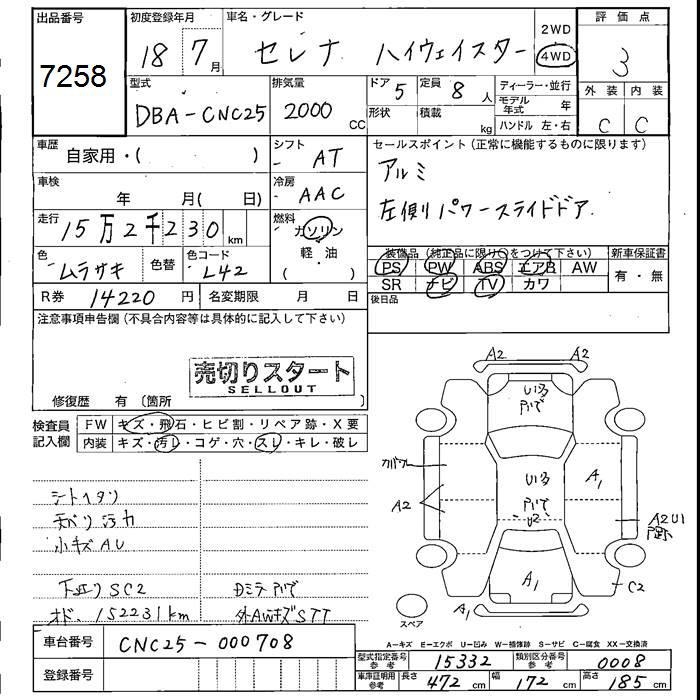 出品番号
7258
初度登録年月
18 7月
車名・グレード
セレナ ハイウェイスター
2WD
4WD
評価点
3
外装 内装
C C
型式
DBA-CNC25
排気量
2000 CC
ドア 5
形状
定員 8 人
積載 kg
ディーラー・並行
モデル年式 年
ハンドル 左・右
車歴
自家用・( )
シフト
AT
車検
年 月( 日)
冷房
AAC
走行
15万2千230 km
燃料
ガソリン
軽・油
( )
色
ムラサキ
色替
色コード
L42
R券 14220 円
名変期限 月 日
セールスポイント(正常に機能するものに限ります)
アルミ
左側りパワースライドドア
装備品(純正品に限り〇をつけて下さい)
PS PW ABS エアB AW
SR ナビ TV カワ
新車保証書
有・無
後日品
注意事項申告欄(不具合内容等は具体的に記入して下さい)
売切りスタート
SELLOUT
修復歴 有(箇所 )
検査員記入欄
FW キズ・飛石・ヒビ割・リペア跡・X要
内装 キズ・汚レ・コゲ・穴・スレ・キレ・破レ
シートヘタリ
天ベリ汚れ
小キズAU
下廻りSC2
オド、152231km
外AWキズSTT
A2 A2
A2
A1
U2
A1
A2U1
C2
A1
スペア
A-キズ E-エクボ U-凹み W-補修跡 S-サビ C-腐食 XX-交換済
車台番号
CNC25-000708
登録番号
型式指定番号 参考
15332
類別区分番号 参考
0008
車庫証明用 参考
長さ 472 cm
幅 172 cm
高さ 185 cm